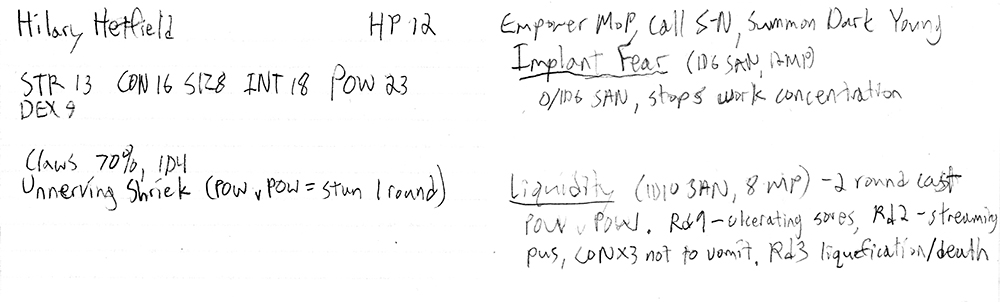 Hilary Hetfield HP 12
STR 13 CON 16 SIZ 8 INT 18 POW 23
DEX 9
Claws 70%, 1D4
Unnerving Shriek (POW v POW = stun 1 round)
Empower MoP, Call S-N, Summon Dark Young
Implant Fear (1D6 SAN, 12MP)
0/1D6 SAN, stops work concentration
Liquidity (1D10 SAN, 8 MP) - 2 round cast
POW v POW. Rd1 - ulcerating sores, Rd2 - streaming
pus, CONX3 not to vomit. Rd3 liquefication/death